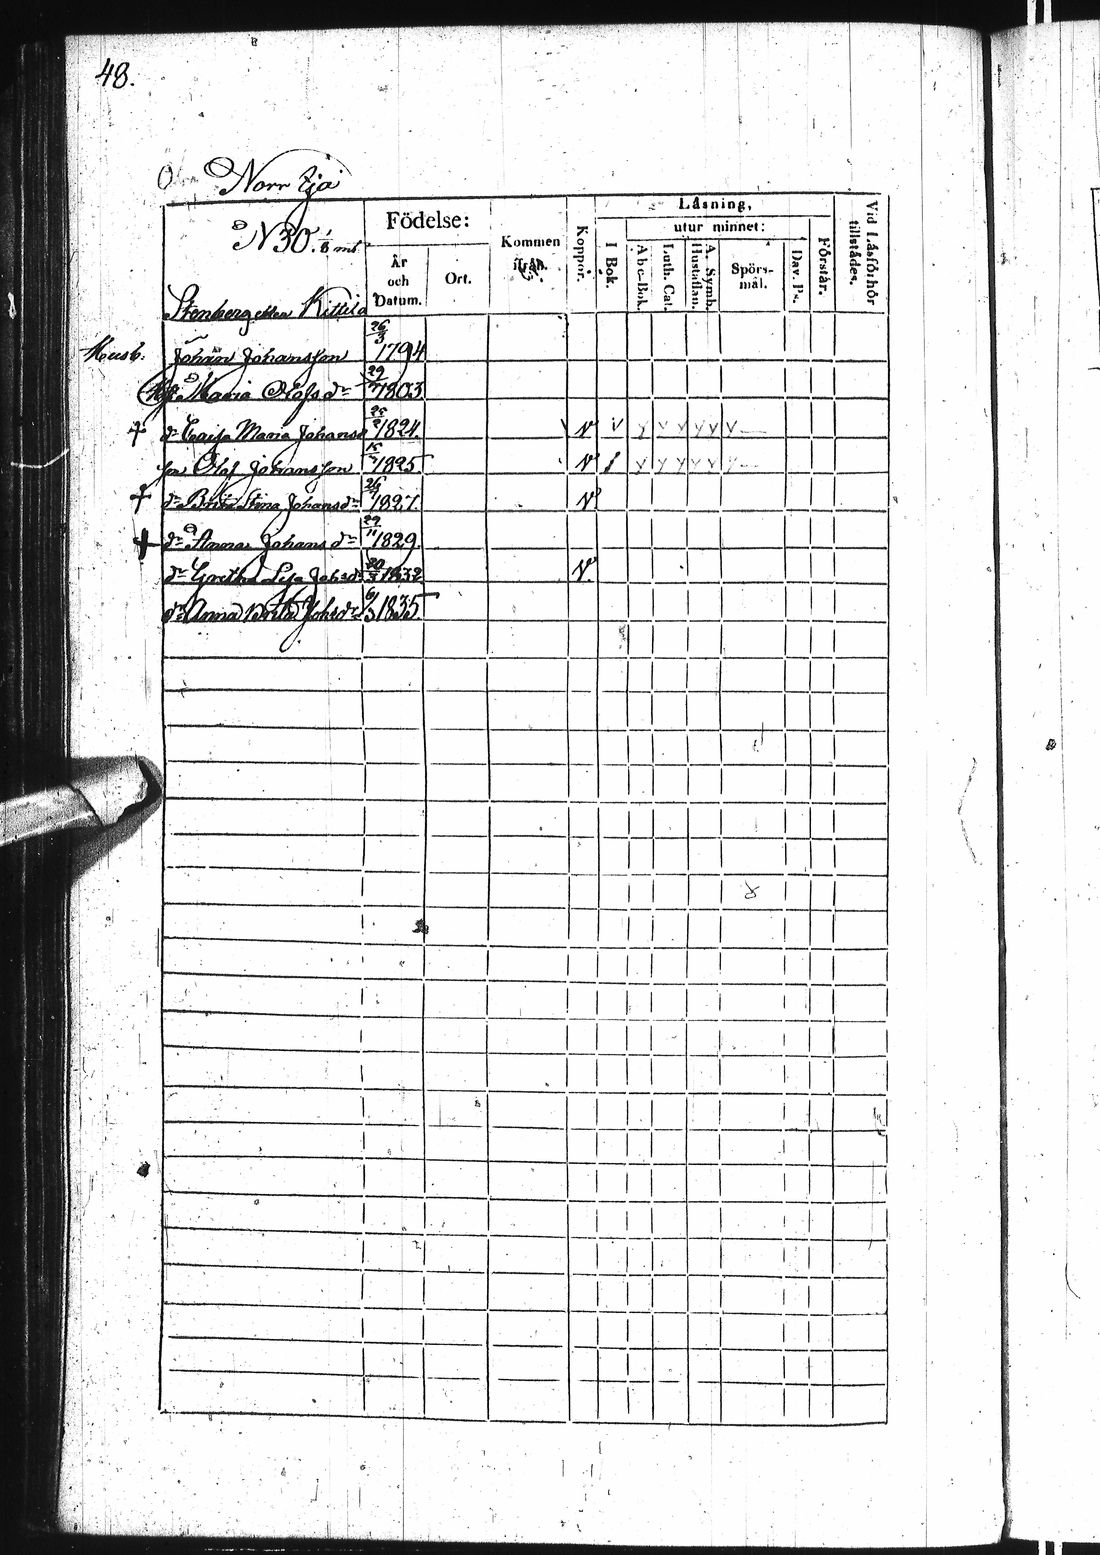 48.
Norr Ijo
N 30. 1/8 mtl
Födelse:
År och Datum.
Ort.
Kommen ifrån.
Koppor.
Läsning,
I Bok.
utur minnet:
Abc-Bok.
Luth. Cat.
Hustaflan.
A. Symb.
Spörs-mål.
Dav. Ps.
Förstår.
Vid Läsförhör tillstädes.
Stenberg eller Kittilä
Husb. Johan Johansson 26/3 1794
Maria Olofs dr 29 1803
† dr Caisa Maria Johans 1824. V
son Olof Johansson 1825 V
† dr Brita Stina Johans dr 26 1827. V
† dr Anna Johans dr 29/11 1829.
dr Gretha Lisa Johs dr 20/3 1832 V.
dr Anna Brita Johs dr 6/3 1835